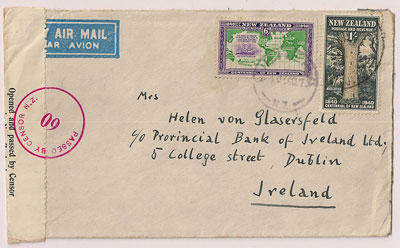 AIR MAIL
PAR AVION
NEW ZEALAND
CENTENNIAL OF NEW ZEALAND
NEW ZEALAND
POSTAGE AND REVENUE
1840 1940
CENTENNIAL OF NEW ZEALAND
N.Z.
Opened and passed by Censor
PASSED BY CENSOR N.Z.
60
Mrs
Helen von Glasersfeld
c/o Provincial Bank of Ireland Ltd,
5 College street, Dublin
Ireland